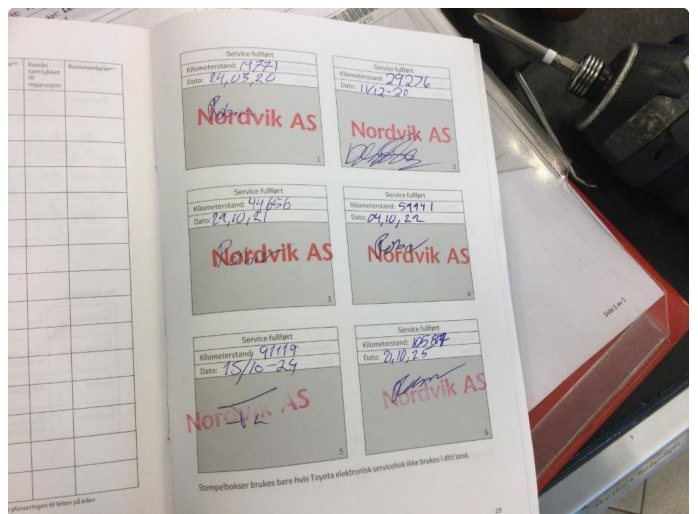 Kunde
samtykket
til
reparasjon
Kommentarer**
Service fullført
Kilometerstand: 14771
Dato: 24,03,20
Nordvik AS
1
Service fullført
Kilometerstand: 29276
Dato: 11/12-20
Nordvik AS
2
Service fullført
Kilometerstand: 44656
Dato: 29,10,21
Nordvik AS
3
Service fullført
Kilometerstand: 59941
Dato: 04,10,22
Nordvik AS
4
Service fullført
Kilometerstand: 91119
Dato: 15/10-24
Nordvik AS
5
Service fullført
Kilometerstand:
Dato: 21,10,25
Nordvik AS
6
Stempelbokser brukes bare hvis Toyota elektronisk servicebok ikke brukes i ditt land.
plasseringen til feilen på bilen
25
Side 1 av 1